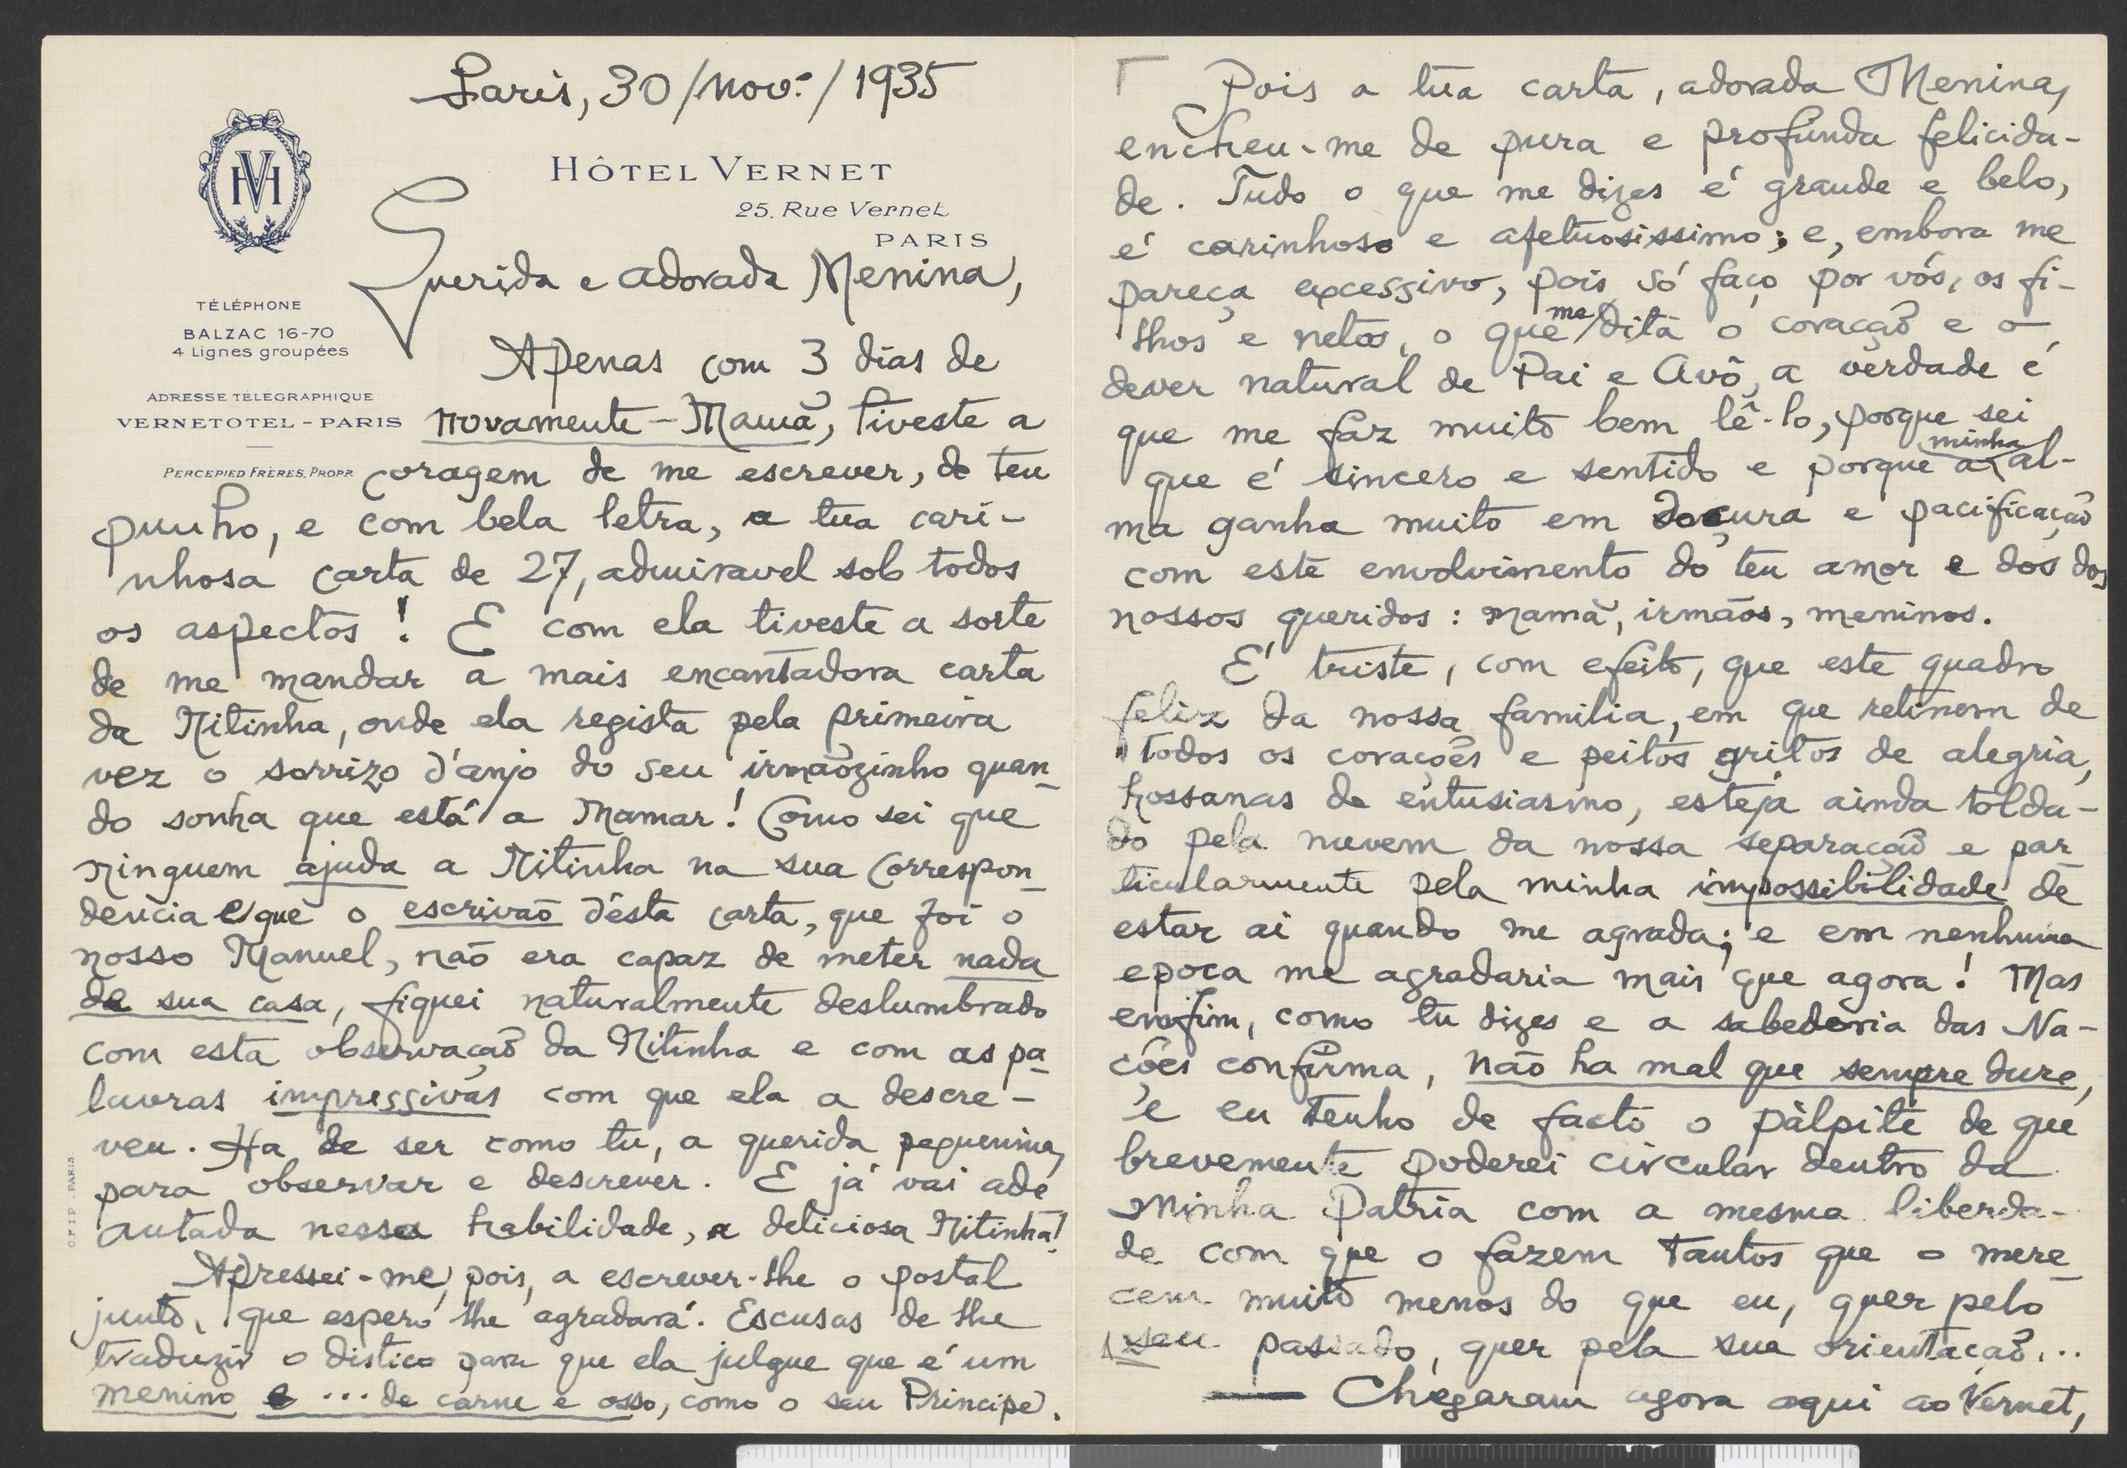 Paris, 30/nov.º/1935
HÔTEL VERNET
25, Rue Vernet
PARIS
HV
TÉLÉPHONE
BALZAC 16-70
4 Lignes groupées
ADRESSE TÉLÉGRAPHIQUE
VERNETOTEL - PARIS
PERCEPIED FRÈRES, PROPR
Querida e adorada Menina,
Apenas com 3 dias de
novamente-Mamã, tiveste a
coragem de me escrever, de teu
punho, e com bela letra, a tua cari-
nhosa carta de 27, admiravel sob todos
os aspectos! E com ela tiveste a sorte
de me mandar a mais encantadora carta
da Nitinha, onde ela regista pela primeira
vez o sorrizo d'anjo do seu irmãozinho quan-
do sonha que está a mamar! Como sei que
ninguem ajuda a Nitinha na sua correspon-
dencia e que o escrivão désta carta, que foi o
nosso Manuel, não era capaz de meter nada
de sua casa, fiquei naturalmente deslumbrado
com esta observação da Nitinha e com as pa-
lavras impressivas com que ela a descre-
veu. Ha de ser como tu, a querida pequenina,
para observar e descrever. E já vai ade
antada nessa habilidade, a deliciosa Nitinha!
Apressei-me, pois, a escrever-lhe o postal
junto, que espero lhe agradará. Escusas de lhe
traduzir o distico para que ela julgue que é um
menino e ... de carne e osso, como o seu Principe.
O.F.I.P. PARIS
Pois a tua carta, adorada Menina,
encheu-me de pura e profunda felicida-
de. Tudo o que me dizes é grande e belo,
é carinhoso e afetuosissimo; e, embora me
pareça excessivo, pois só faço por vós, os fi-
lhos e netos, o que me dita o coração e o
dever natural de Pai e Avô, a verdade é
que me faz muito bem lê-lo, porque sei
que é sincero e sentido e porque a minha al-
ma ganha muito em doçura e pacificação
com este envolvimento do teu amor e dos dos
nossos queridos: mamã, irmãos, meninos.
É triste, com efeito, que este quadro
feliz da nossa familia, em que retinem de
todos os corações e peitos gritos de alegria,
hossanas de entusiasmo, esteja ainda tolda-
do pela nuvem da nossa separação e par-
ticularmente pela minha impossibilidade de
estar ai quando me agrada; e em nenhuma
epoca me agradaria mais que agora! Mas
enfim, como tu dizes e a sabedoria das Na-
ções confirma, não ha mal que sempre dure,
e eu tenho de facto o pálpite de que
brevemente poderei circular dentro da
Minha Patria com a mesma liberda-
de com que o fazem tantos que o mere-
cem muito menos do que eu, quer pelo
seu passado, quer pela sua orientação...
Chegaram agora aqui ao Vernet,